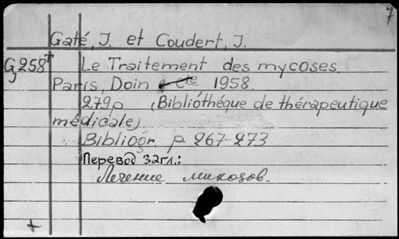 7
Gaté, J. et Coudert, J.
Le Traitement des mycoses.
Paris, Doin 1958
279p (Bibliothéque de thérapeutique
médicale)
Bibliogr. p. 267-273
Перевод загл.:
Лечение микозов.